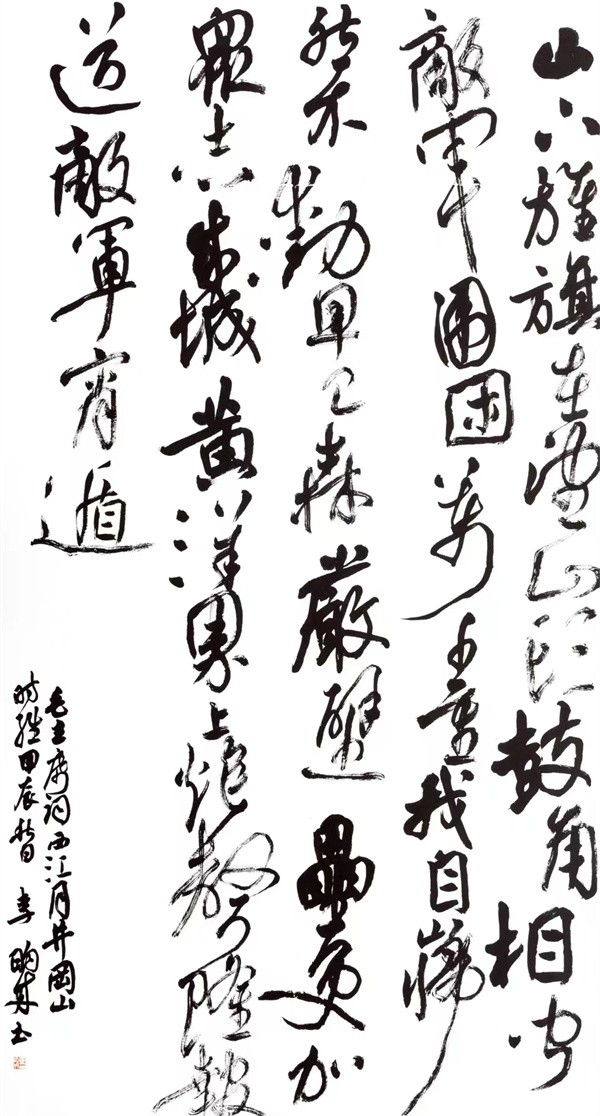 山下旌旗在望山頭鼓角相聞
敵軍圍困萬千重我自巋
然不動早已森嚴壁壘更加
眾志成城黃洋界上炮聲隆報
道敵軍宵遁
毛主席詞西江月井岡山
時維甲辰秋日 李書